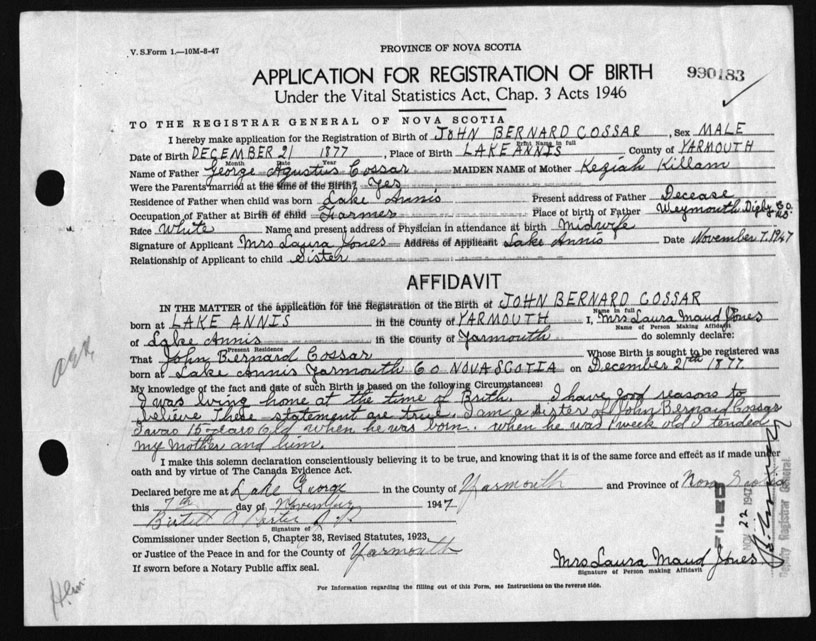 V. S. Form 1.—10M-8-47
PROVINCE OF NOVA SCOTIA
APPLICATION FOR REGISTRATION OF BIRTH
990183
Under the Vital Statistics Act, Chap. 3 Acts 1946
TO THE REGISTRAR GENERAL OF NOVA SCOTIA
I hereby make application for the Registration of Birth of JOHN BERNARD COSSAR, Sex MALE
Print Name in full
Date of Birth DECEMBER 21 1877, Place of Birth LAKE ANNIS County of YARMOUTH
Month Date Year
Name of Father George Agustus Cossar MAIDEN NAME of Mother Keziah Killam
Were the Parents married at the time of the Birth? Yes
Residence of Father when child was born Lake Annis Present address of Father Decease
Occupation of Father at Birth of child Farmer Place of birth of Father Weymouth Digby Co. N.S.
Race White Name and present address of Physician in attendance at birth Midwife
Signature of Applicant Mrs Laura Jones Address of Applicant Lake Annis Date November 7, 1947
Relationship of Applicant to child Sister
AFFIDAVIT
IN THE MATTER of the application for the Registration of the Birth of JOHN BERNARD COSSAR
Name in full
born at LAKE ANNIS in the County of YARMOUTH I, Mrs Laura Maud Jones
Name of Person Making Affidavit
of Lake Annis in the County of Yarmouth do solemnly declare:
Present Residence
That John Bernard Cossar Whose Birth is sought to be registered was
born at Lake Annis Yarmouth Co NOVA SCOTIA on December 21th 1877
My knowledge of the fact and date of such Birth is based on the following Circumstances:
I was living home at the time of Brith. I have good reasons to
believe These statement are true. I am a sister of John Bernard Cossar
I was 15 years Old when he was born. when he was 1 week old I tended
my Mother and him.
I make this solemn declaration conscientiously believing it to be true, and knowing that it is of the same force and effect as if made under
oath and by virtue of The Canada Evidence Act.
Declared before me at Lake George in the County of Yarmouth and Province of Nova Scotia
this 7th day of November 1947.
Signature of
Commissioner under Section 5, Chapter 38, Revised Statutes, 1923,
or Justice of the Peace in and for the County of Yarmouth
If sworn before a Notary Public affix seal.
Mrs Laura Maud Jones
Signature of Person making Affidavit
For Information regarding the filling out of this Form, see Instructions on the reverse side.
FILED
NOV 22 1947
Deputy Registrar General.